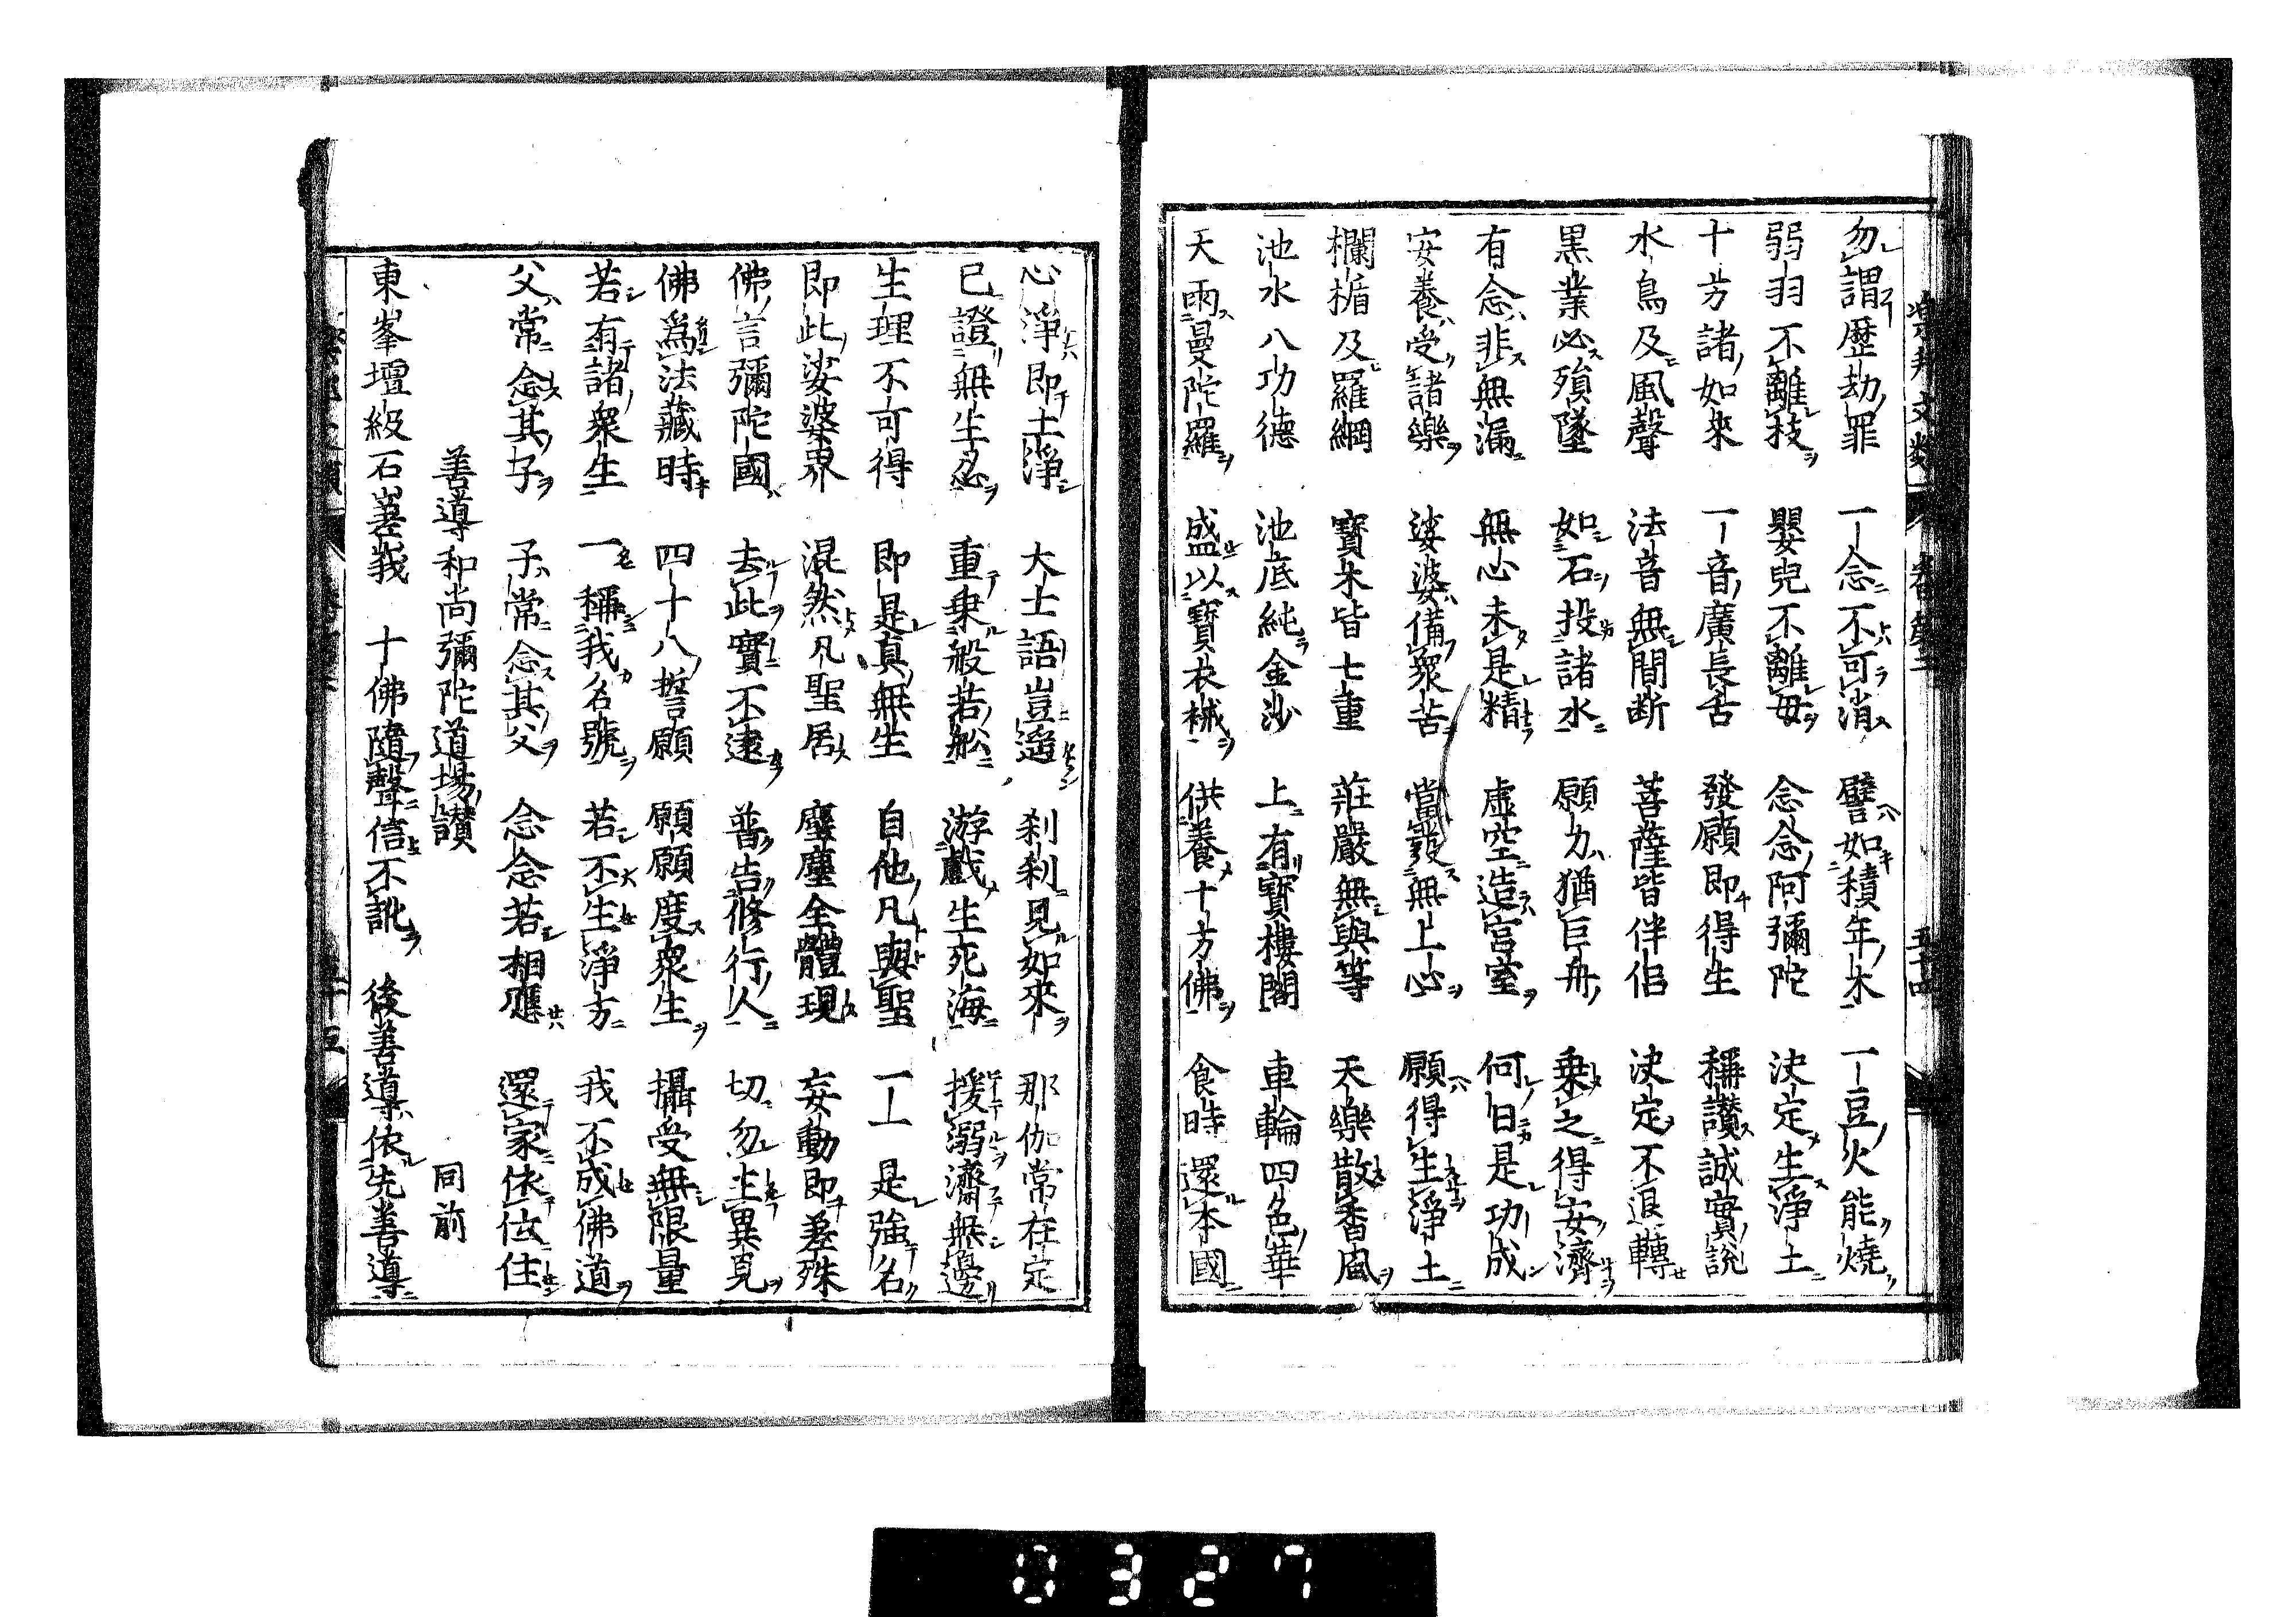 勿謂歷劫罪　一念不可消　譬如積年木　一豆火能燒
弱羽不離枝　嬰兒不離母　念念阿彌陀　決定生淨土
十方諸如來　一音廣長舌　發願即得生　稱讚誠實說
水鳥及風聲　法音無間断　菩薩皆伴侶　決定不退轉
黑業必殞墜　如石投諸水　願力猶巨舟　乗之得安濟
有念非無漏　無心未是精　虛空造宮室　何日是功成
安養受諸樂　娑婆備衆苦　當發無上心　願得生淨土
欄楯及羅網　寳木皆七重　莊嚴無與等　天樂散香風
池水八功德　池底純金沙　上有寳樓閣　車輪四色華
天雨曼陀羅　盛以寳衣祴　供養十方佛　食時還本國
心淨即土淨　大士語豈遥　刹刹見如來　那伽常在定
已證無生忍　重乗般若舩　游戲生死海　援溺濟無邊
生理不可得　即是真無生　自他凡與聖　一一是強名
即此娑婆界　混然凡聖居　塵塵全體現　妄動即差殊
佛言彌陀國　去此實不逺　普告修行人　切勿生異見
佛爲法藏時　四十八誓願　願願度衆生　攝受無限量
若有諸衆生　一稱我名號　若不生淨方　我不成佛道
父常念其子　子常念其父　念念若相應　還家依位住
善導和尚彌陀道場讚　同前
東峯壇級石嵳峩　十佛隨聲信不訛　後善導依先善導